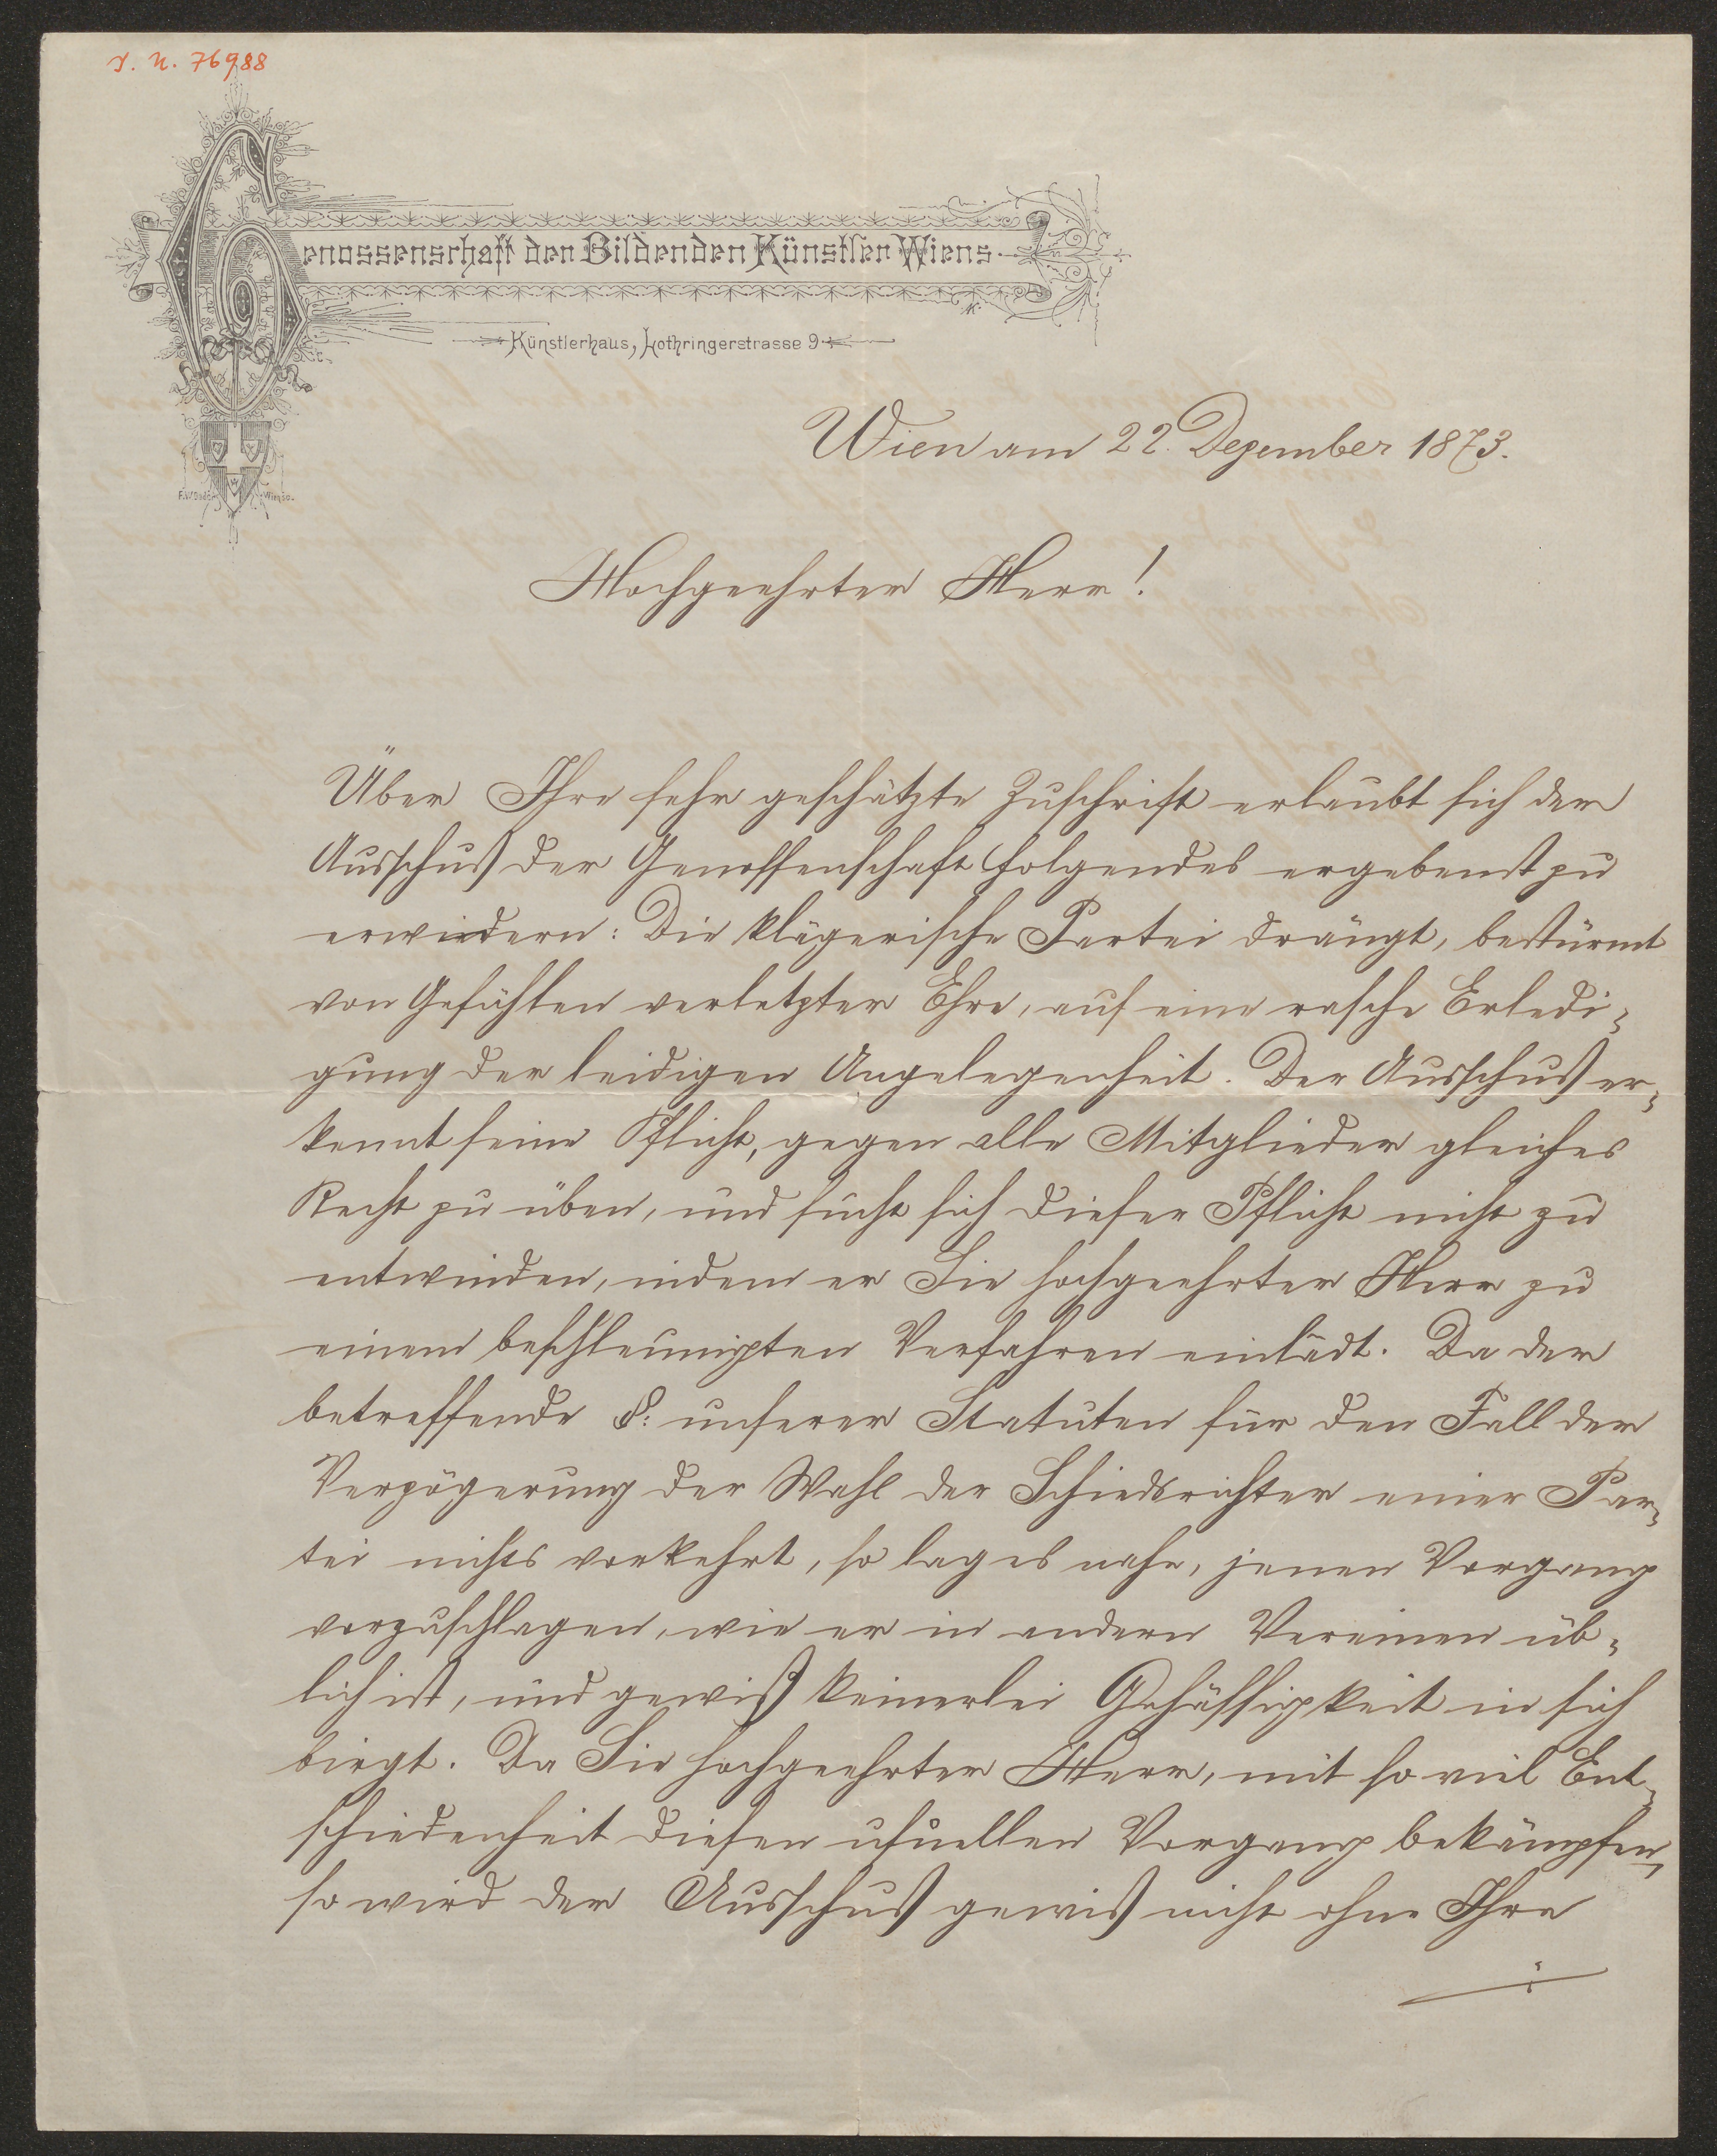 I. N. 76988
Genossenschaft der Bildenden Künstler Wiens
Künstlerhaus, Lothringerstrasse 9
Wien am 22. Dezember 1873.
Hochgeehrter Herr!
Über Ihre sehr geschätzte Zuschrift erlaubt sich der
Ausschuß der Genossenschaft Folgendes ergebenst zu
erwiedern: Die klägerische Partei drängt, bestürmt
von Gefühlen verletzter Ehre, auf eine rasche Erledi-
gung der leidigen Angelegenheit. Der Ausschuß er-
kennt seine Pflicht, gegen alle Mitglieder gleiches
Recht zu üben, und sucht sich dieser Pflicht nicht zu
entwinden, indem er Sie hochgeehrter Herr zu
einem beschleunigten Verfahren einlädt. Da der
betreffende §: unserer Statuten für den Fall der
Verzögerung der Wahl der Schiedsrichter einer Par-
tei nichts vorkehrt, so lag es nahe, jenen Vorgang
vorzuschlagen, wie er in andern Vereinen üb-
lich ist, und gewiß keinerlei Gehässigkeit in sich
birgt. Da Sie hochgeehrter Herr, mit so viel Ent-
schiedenheit diesen usuellen Vorgang bekämpfen,
so wird der Ausschuß gewiß nicht ohne Ihre